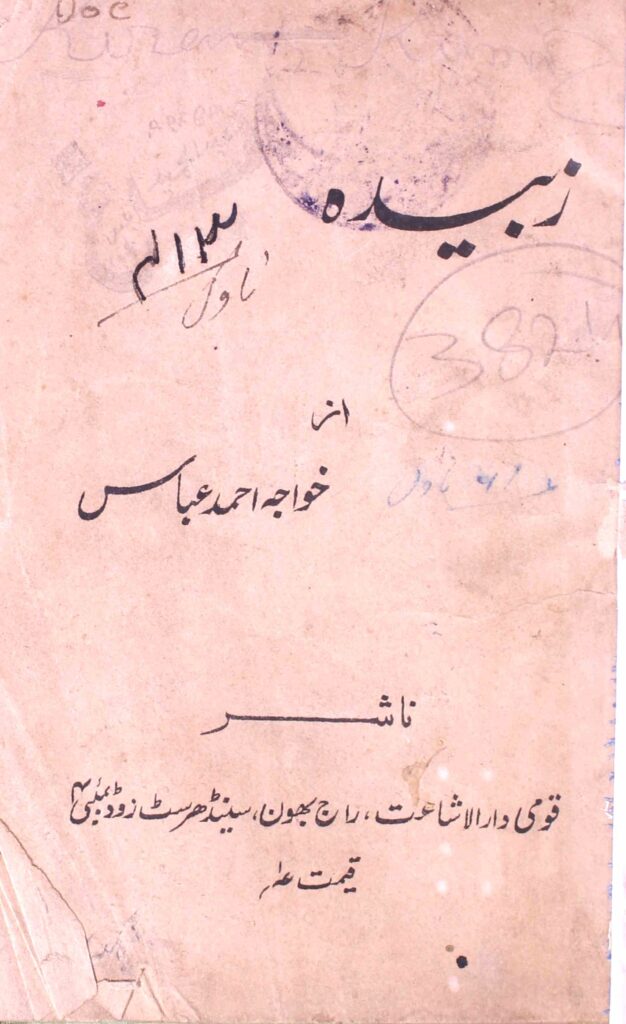 Doc
زبیدہ
ناول
382
از
خواجہ احمد عباس
ناول
ناشر
قومی دارالاشاعت، راج بھون، سینڈھرسٹ روڈ بمبئی ۴
قیمت عہ